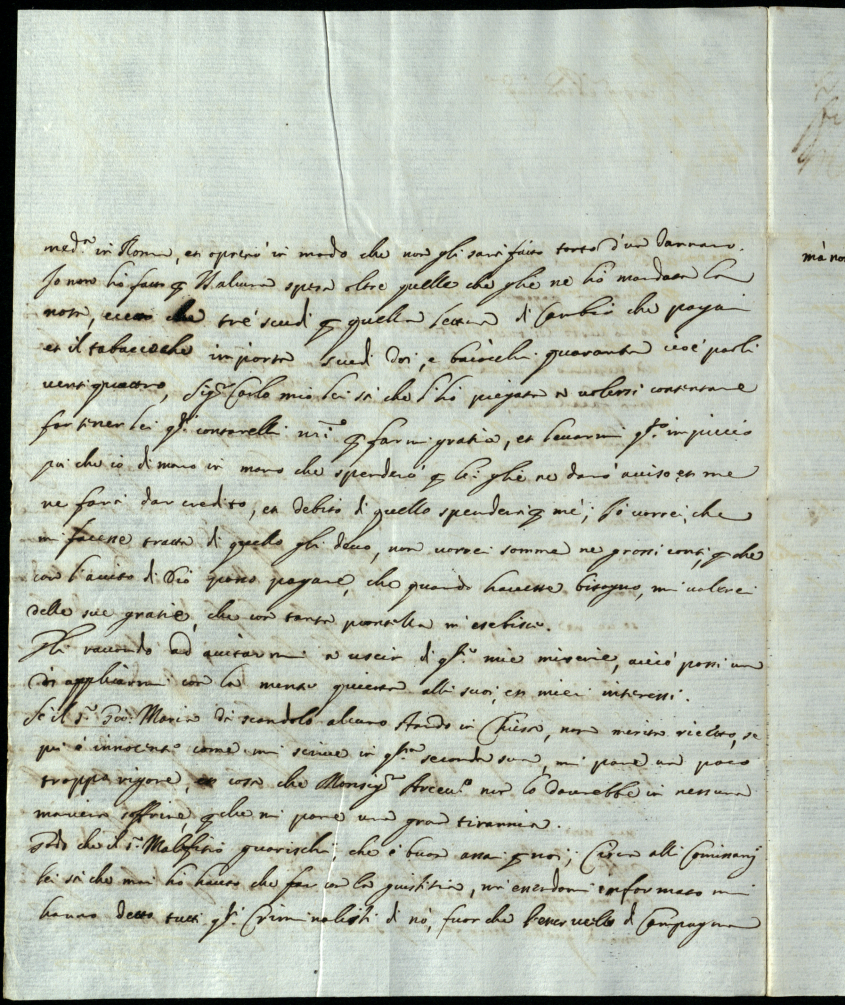 med.ª in Roma, et opererò in modo che non gli sarà fatto torto d'un danaro.
Io non ho fatto p altra spesa oltre quelle che glie ne hò mandata la
nota, che trè scudi p quella lettera di Cambio che pagai
et il tabacco che importa scudi doi, e baiocchi quaranta cioè paoli
ventiquattro, Sig.r Carlo mio lei sà che l'hò pregata à volersi contentare
far tener lei q.ti contarelli p farmi gratia, et levarmi q.to impiccio
poi che io di mano in mano che spenderò p lei glie ne darò aviso, et me
ne farà dar credito, et debito di quello spenderà p mè; Lo vorrei, che
mi facesse tratta di quello gli devo, non vorrei somme ne grossi conti, p che
con l'aiuto di Dio posso pagare, che quando havesse bisogno, mi valerei
delle sue gratie, che con tanta prontezza m'esebisce.
Gli raccordo ad aiutarmi à uscir di q.te mie miserie, acciò possi una
dì applicarmi con la mente quieta alli suoi, et miei interessi.
Se il S.r Gio: Maria dà scandolo alcuno stando in Chiesa, non merita se
poi è innocente come mi scrive in q.sta seconda sua, mi pare un poco
troppo rigore, et cosa che Monsig.r Arceu.o non lo dovrebbe in nessuna
maniera soffrire, p che mi pare una gran tirannia.
Godo che il S.r guarischi, che è buon assai p noi; Circa alli Commissarij
lei sà che mai hò hauto che far con la giustitia, m'essendomi informato mi
hanno detto tutti q.ti Criminalisti di nò, fuor che di Campagna
mà non